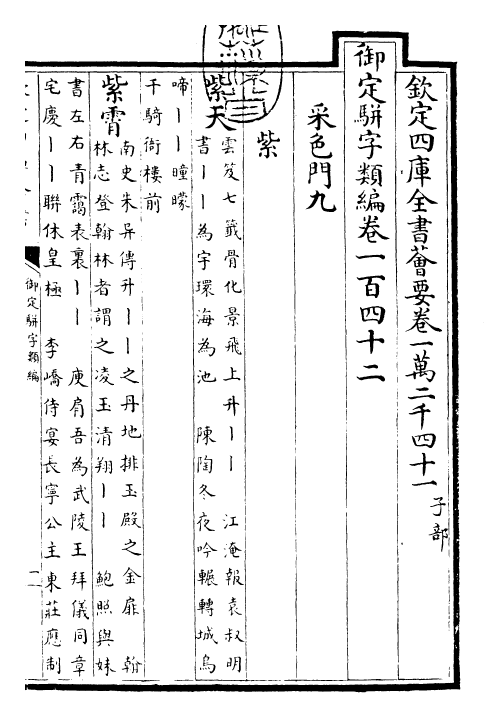 欽定四庫全書薈要卷一萬二千四十一 子部
御定駢字類編卷一百四十二
采色門九
紫
紫天 雲笈七籤骨化景飛上升丨丨 江淹報袁叔明
書丨丨為宇環海為池 陳陶冬夜吟輾轉城烏
啼丨丨曈曚
千騎衙樓前
紫霄 南史朱异傳升丨丨之丹地排玉殿之金扉 翰
林志登翰林者謂之凌玉清翔丨丨 鮑照與妹
書左右青靄表裏丨丨 庾肩吾為武陵王拜儀同章
宅慶丨丨聯休皇極 李嶠侍宴長寧公主東莊應制
御定駢字類編